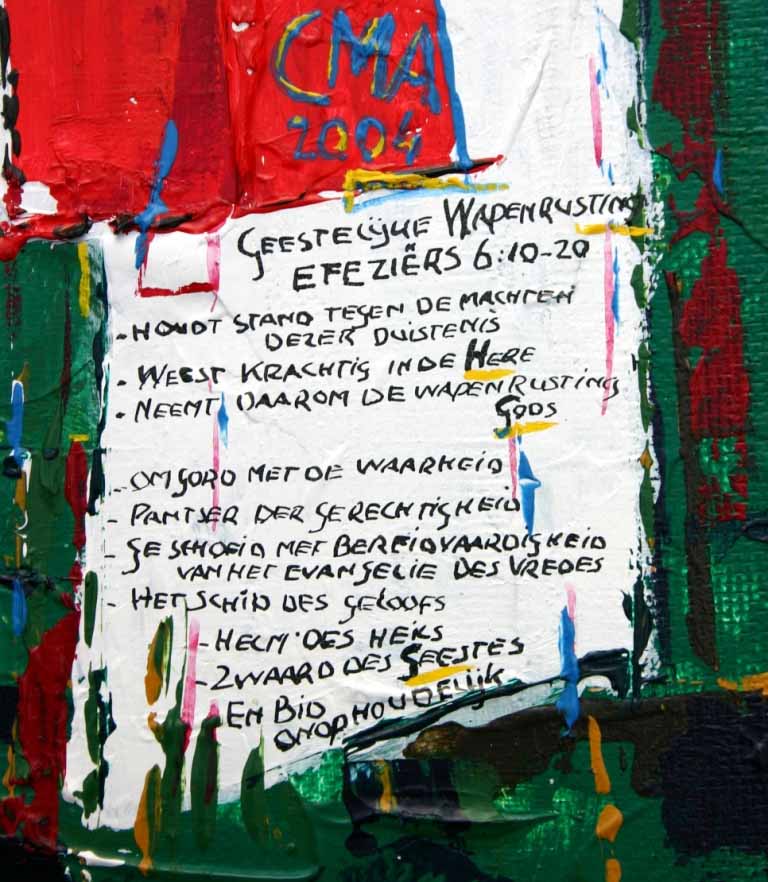 CMA
2004
GEESTELIJKE WAPENRUSTING
EFEZIËRS 6:10-20
- HOUDT STAND TEGEN DE MACHTEN
DEZER DUISTENIS
• WEEST KRACHTIG IN DE HERE
• NEEMT DAAROM DE WAPENRUSTING
GODS
- OMGORD MET DE WAARHEID
- PANTSER DER GERECHTIGHEID
- GESCHOEID MET BEREIDVAARDIGHEID
VAN HET EVANGELIE DES VREDES
- HET SCHILD DES GELOOFS
- HELM DES HEILS
- ZWAARD DES GEESTES
- EN BID
ONOPHOUDELIJK